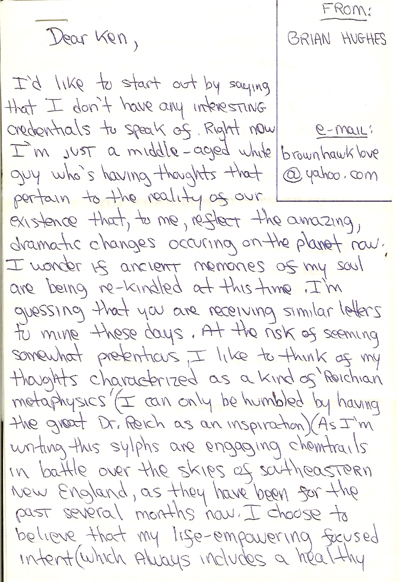 FROM:
BRIAN HUGHES
e-mail:
brownhawklove
@yahoo.com
Dear Ken,
I'd like to start out by saying
that I don't have any interesting
credentials to speak of. Right now
I'm just a middle-aged white
guy who's having thoughts that
pertain to the reality of our
existence that, to me, reflect the amazing,
dramatic changes occuring on the planet now.
I wonder if ancient memories of my soul
are being re-kindled at this time. I'm
guessing that you are receiving similar letters
to mine these days. At the risk of seeming
somewhat pretentious, I like to think of my
thoughts characterized as a kind of 'Reichian
metaphysics' (I can only be humbled by having
the great Dr. Reich as an inspiration) (As I'm
writing this sylphs are engaging chemtrails
in battle over the skies of southeastern
New England, as they have been for the
past several months now. I choose to
believe that my life-empowering focused
intent (which Always includes a healthy